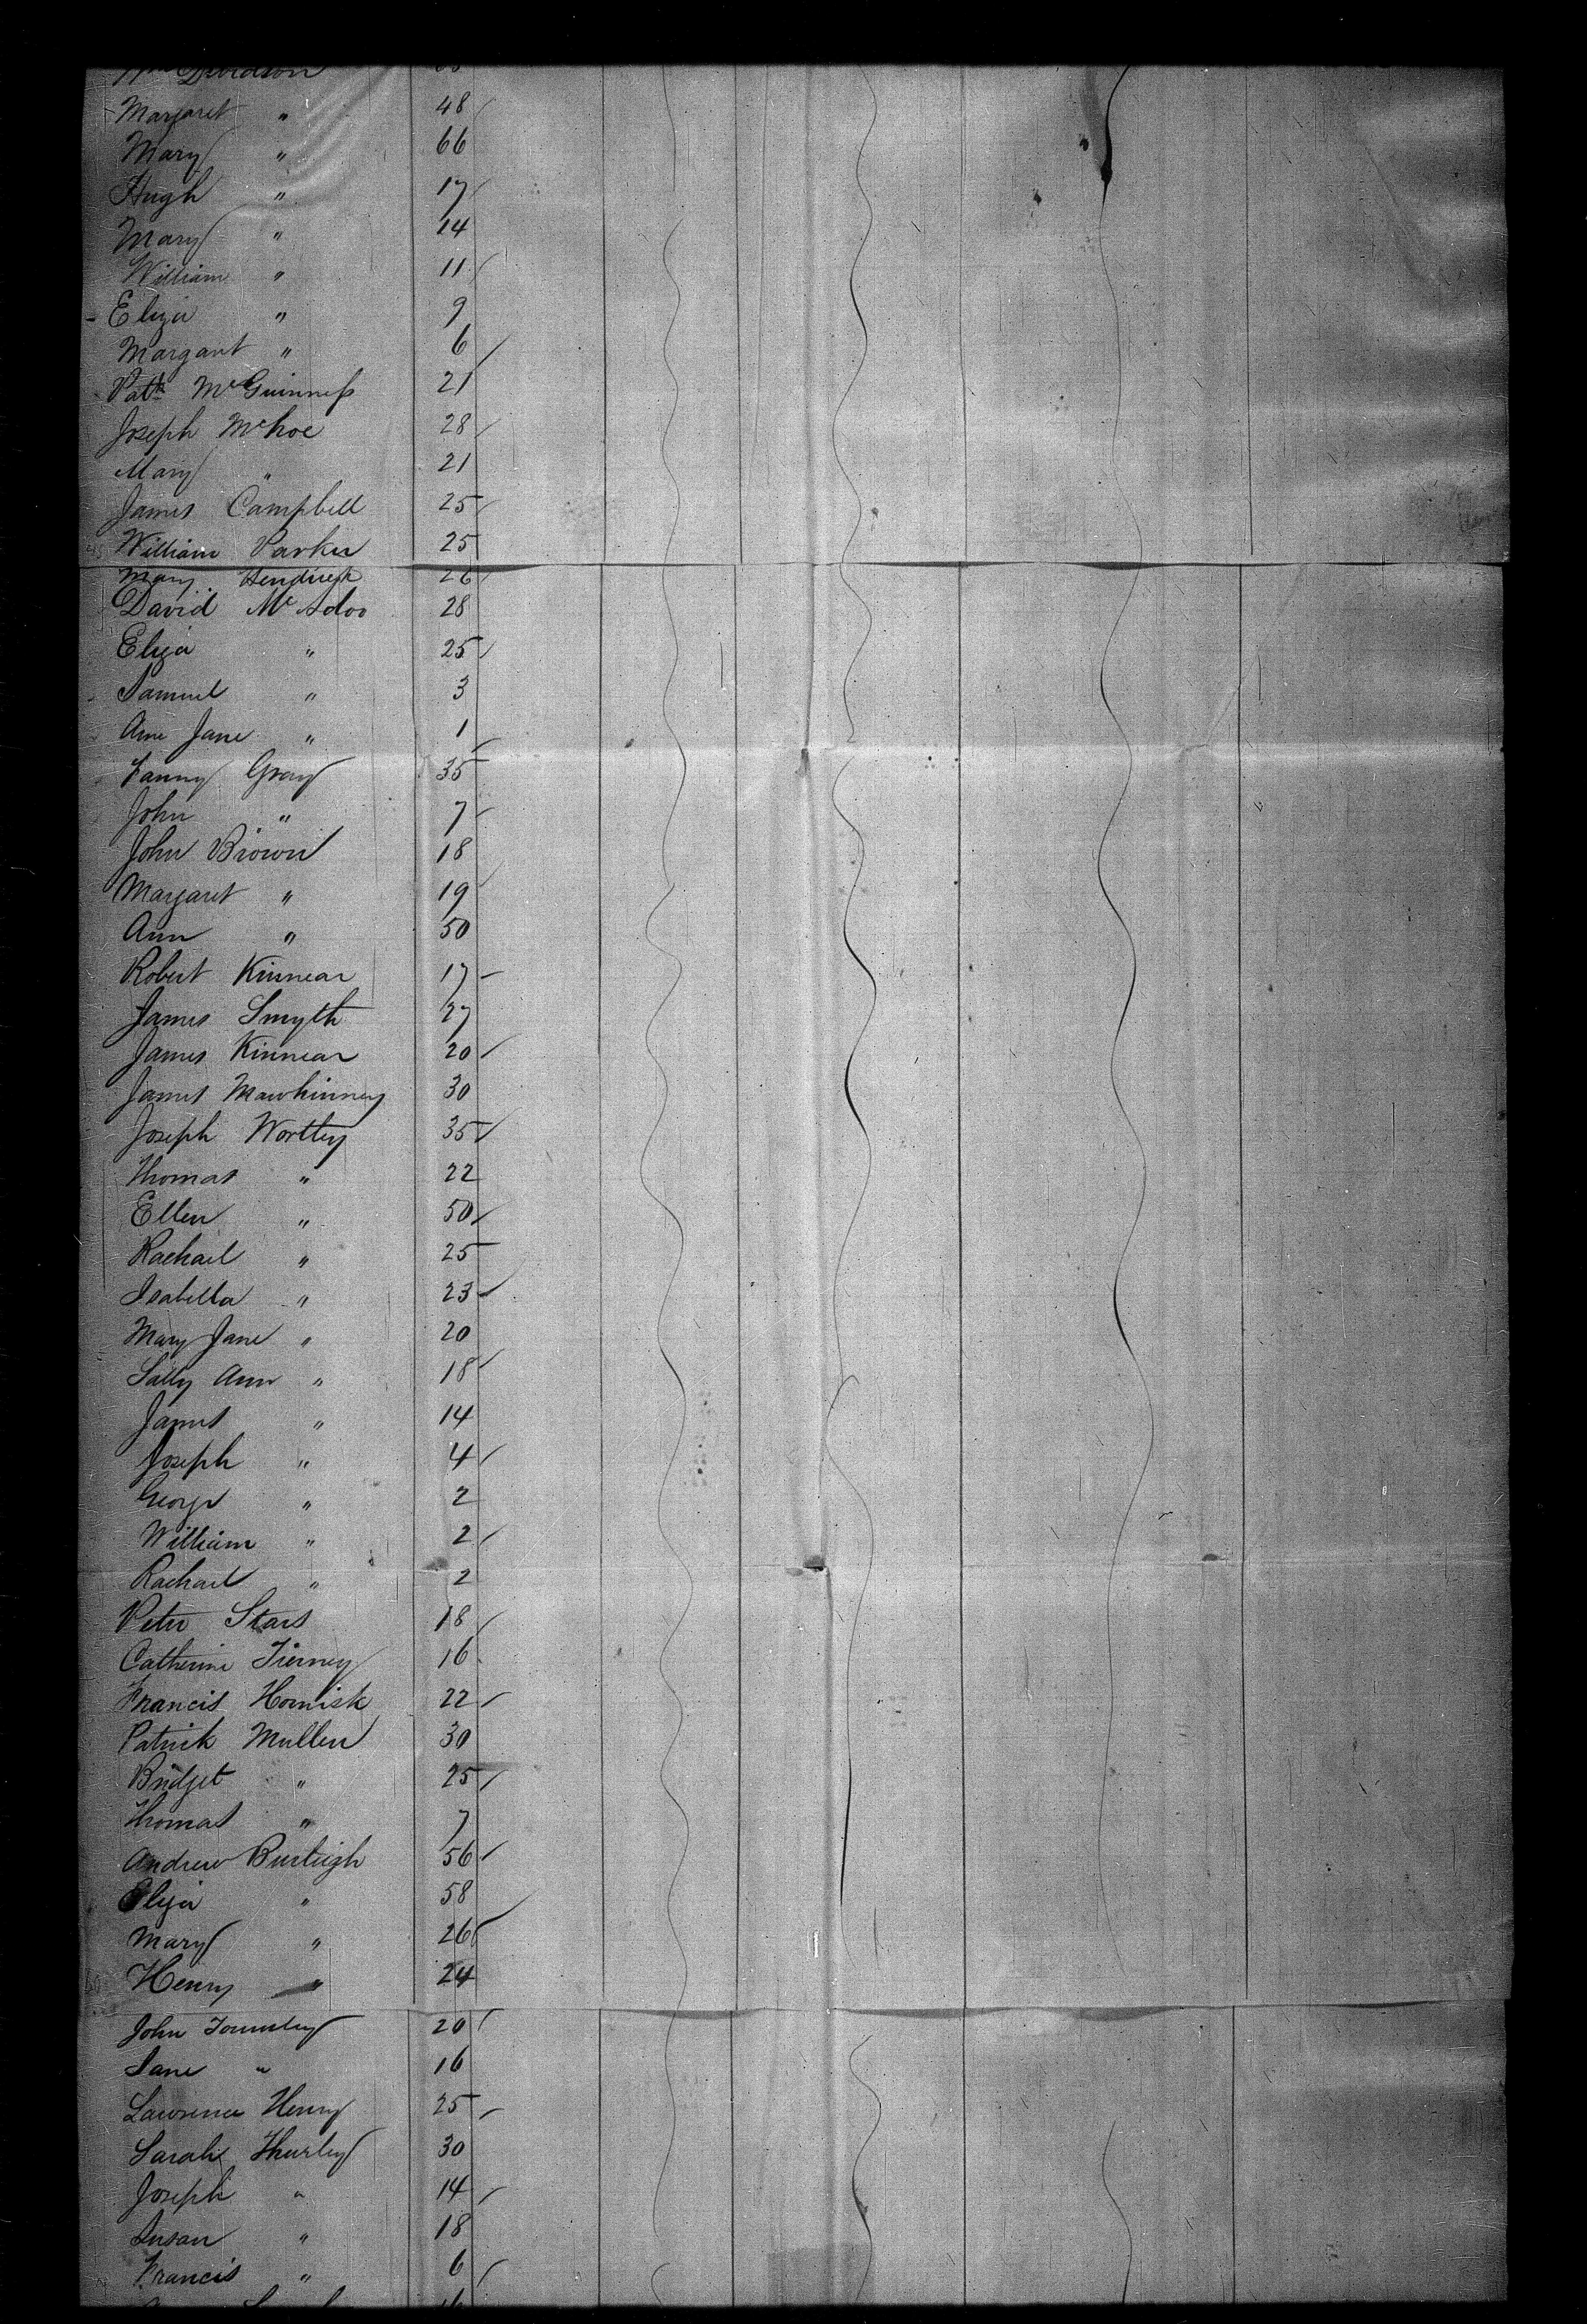 Wm Davidson
Margaret " 48
Mary " 66
Hugh " 17
Mary " 14
William " 11
Eliza " 9
Margaret " 6
Patk McGuinness 21
Joseph 28
Mary " 21
James Campbell 25
William Parker 25
Mary 26
David McAdoo 28
Eliza " 25
Samuel " 3
Ann Jane " 1
Fanny Gray 35
John " 7
John Brown 18
Margaret " 19
Ann " 50
Robert Kinnear 17
James Smyth 27
James Kinnear 20
James Mawhinney 30
Joseph Wortley 35
Thomas " 22
Ellen " 50
Rachael " 25
Isabella " 23
Mary Jane " 20
Sally Ann " 18
James " 14
Joseph " 4
George " 2
William " 2
Rachael " 2
Peter Stars 18
Catherine Tierney 16
Francis Hornisk 22
Patrick Mullen 30
Bridget " 25
Thomas " 7
Andrew Burleigh 56
Eliza " 58
Mary " 26
Henry " 24
John 20
Jane " 16
Lawrence Henry 25
Sarah 30
Joseph " 14
Susan " 18
Francis " 6